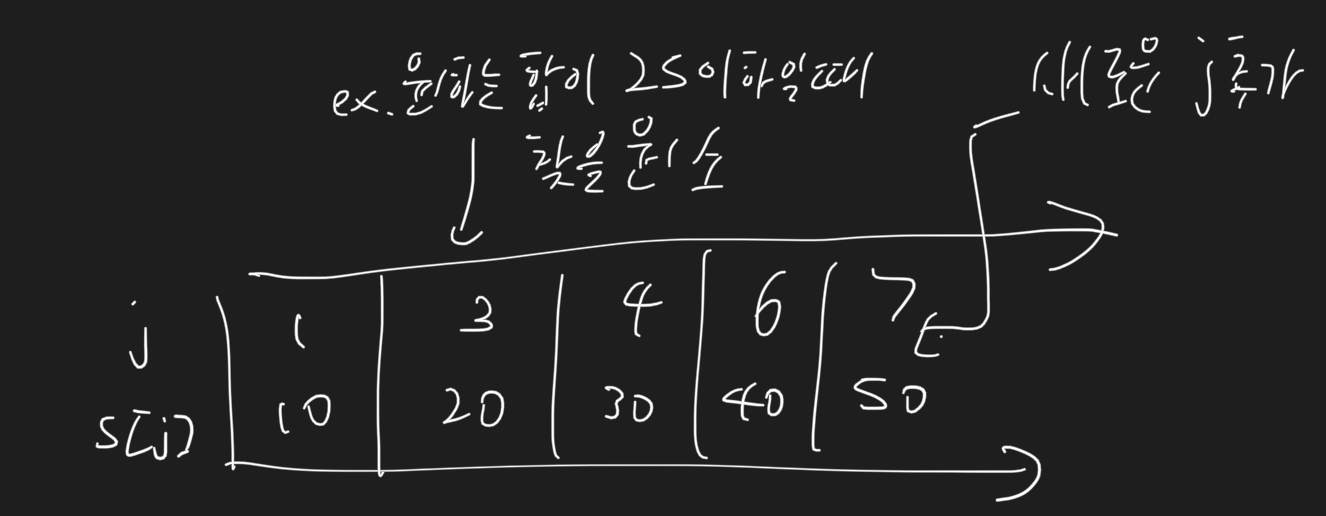 ex. 원하는 합이 25이하일때
찾을 원소
새로운 j추가
j 1 3 4 6 7
S[j] 10 20 30 40 50